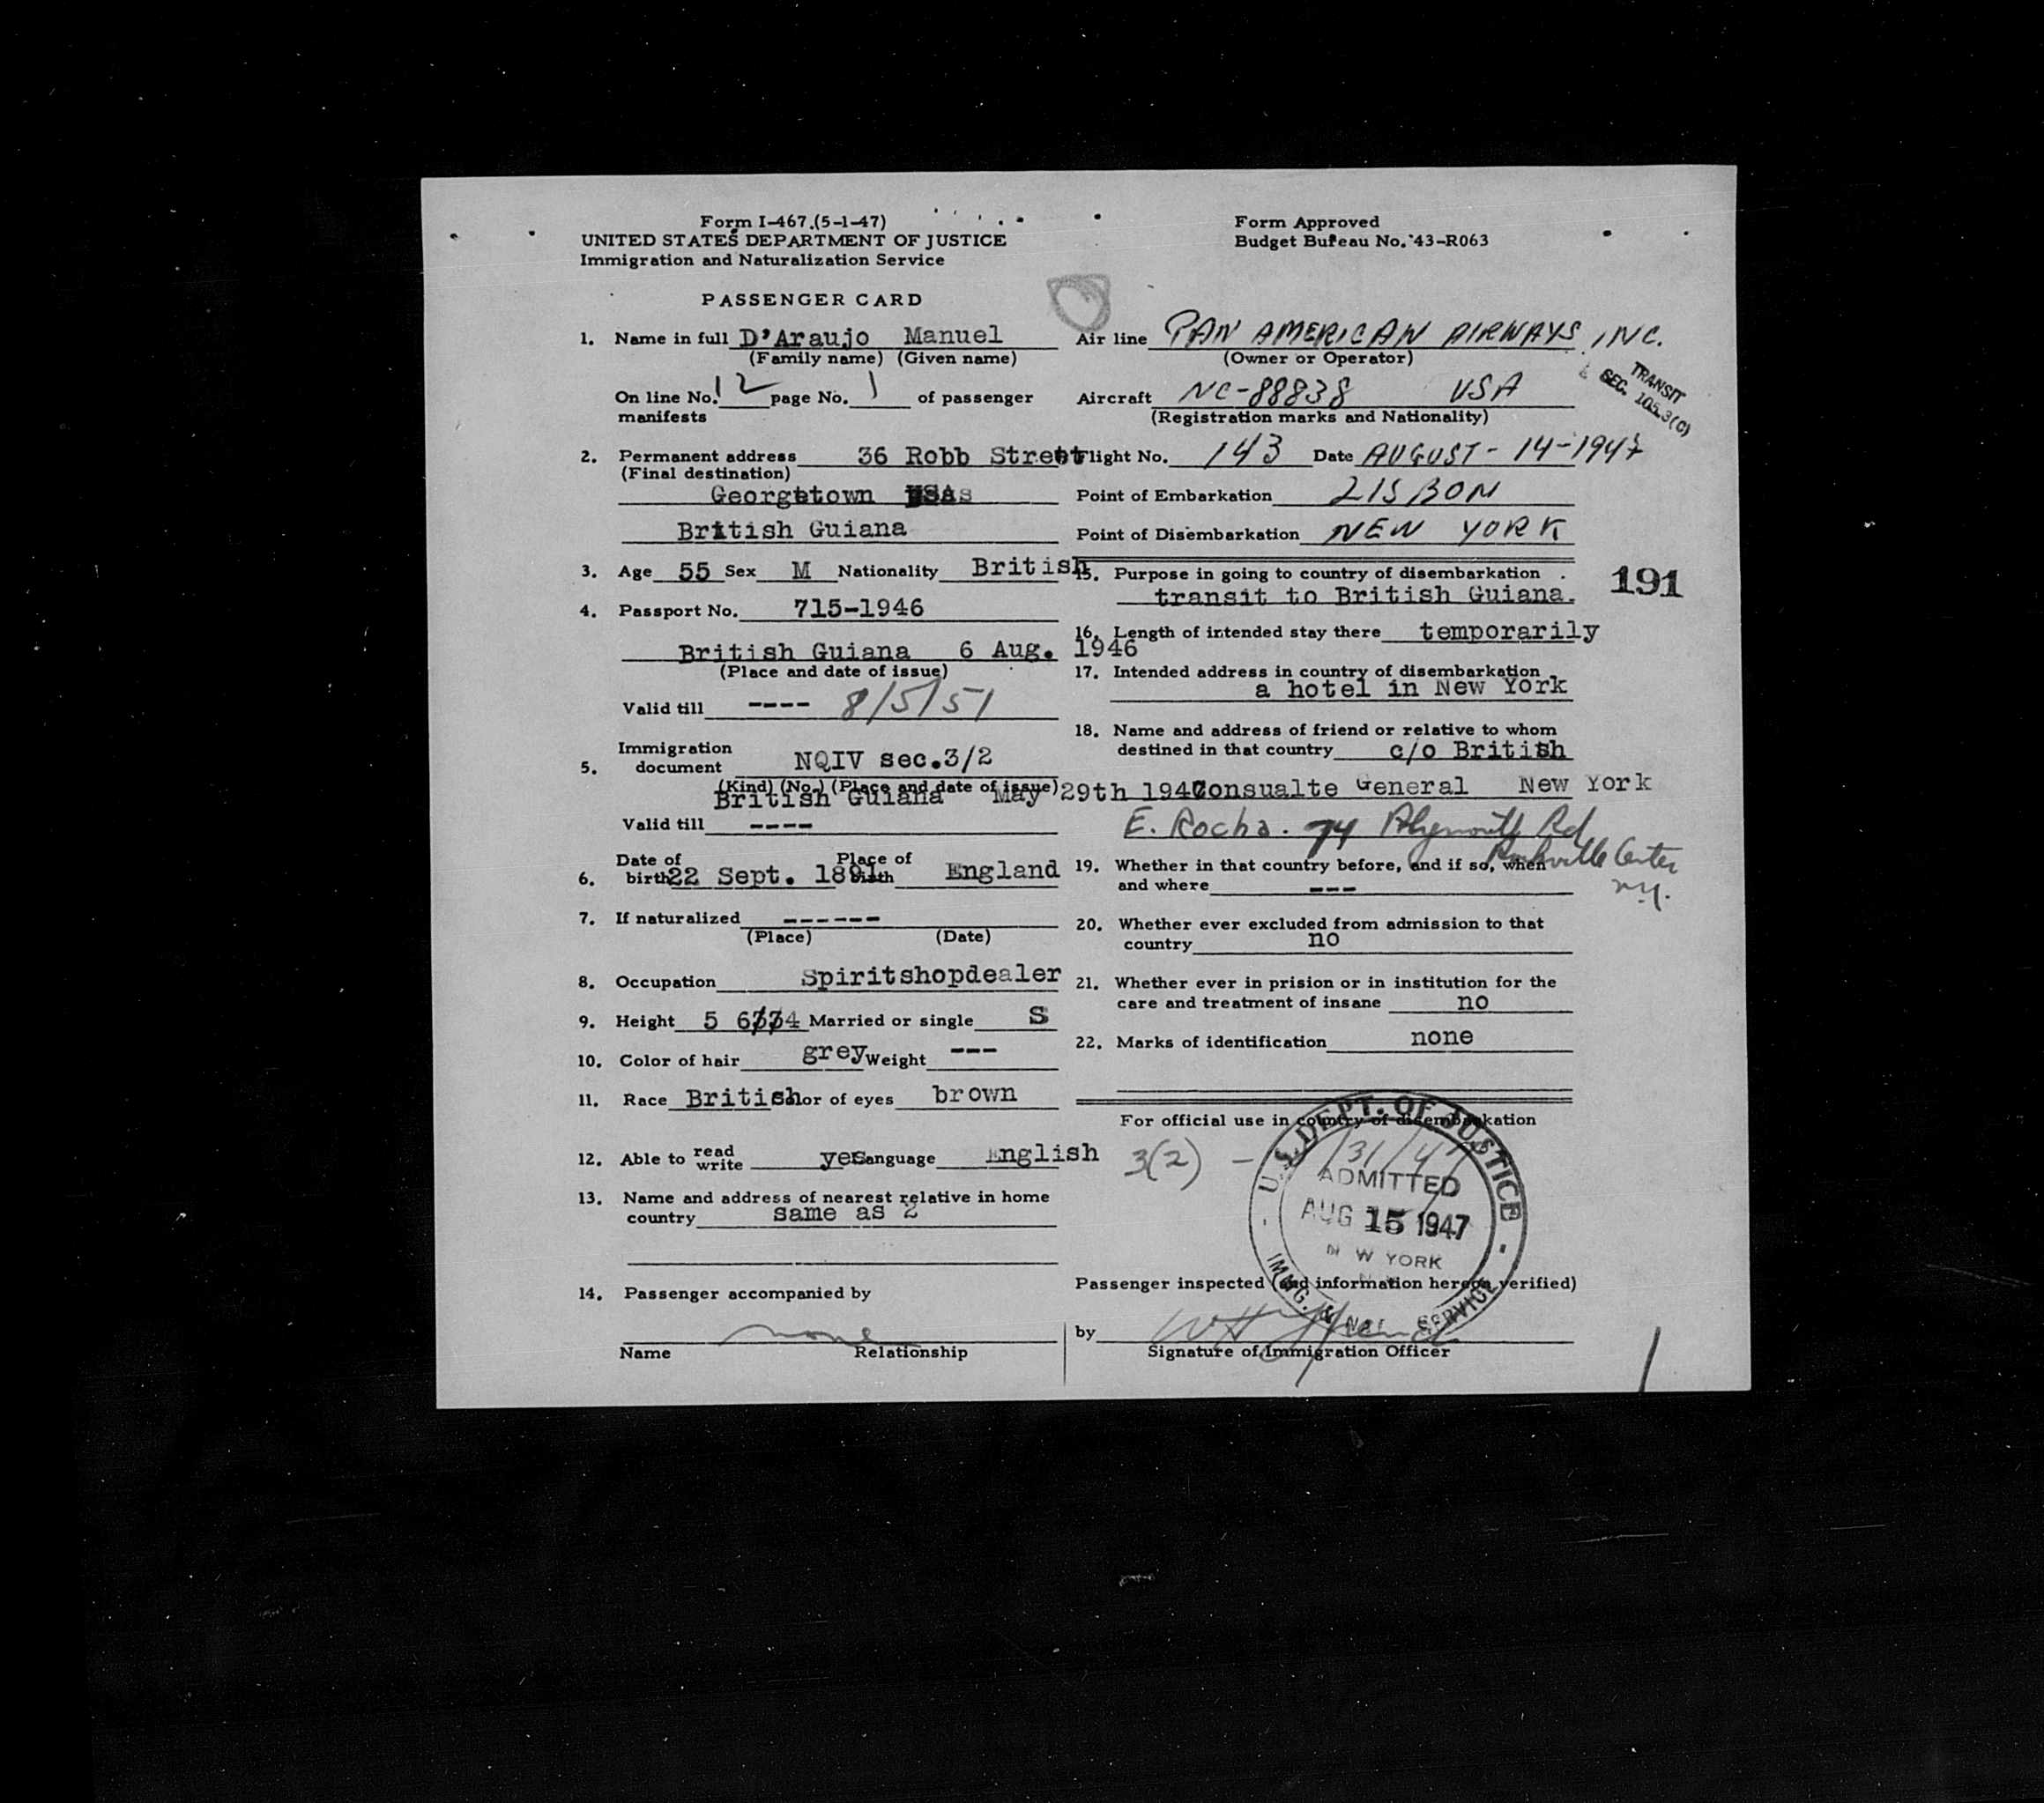 Form I-467 (5-1-47)
UNITED STATES DEPARTMENT OF JUSTICE
Immigration and Naturalization Service
Form Approved
Budget Bureau No. 43-R063
PASSENGER CARD
1. Name in full D'Araujo Manuel
(Family name) (Given name)
On line No. 12 page No. 1 of passenger
manifests
2. Permanent address 36 Robb Street
(Final destination)
Georgetown
British Guiana
3. Age 55 Sex M Nationality British
4. Passport No. 715-1946
British Guiana 6 Aug. 1946
(Place and date of issue)
Valid till ---- 8/5/51
Immigration
5. document NQIV sec.3/2
(Kind) (No.) (Place and date of issue)
British Guiana May 29th 1947
Valid till ----
6. Date of birth 22 Sept. 1891 Place of birth England
7. If naturalized ------
(Place) (Date)
8. Occupation Spiritshopdealer
9. Height 5 6 Married or single S
10. Color of hair grey Weight ---
11. Race British Color of eyes brown
12. Able to read write yes Language English
13. Name and address of nearest relative in home
country same as 2
14. Passenger accompanied by
none
Name Relationship
Air line PAN AMERICAN AIRWAYS, INC.
(Owner or Operator)
TRANSIT
SEC. 105.3(C)
Aircraft NC-88838 USA
(Registration marks and Nationality)
Flight No. 143 Date AUGUST-14-1947
Point of Embarkation LISBON
Point of Disembarkation NEW YORK
15. Purpose in going to country of disembarkation
transit to British Guiana.
191
16. Length of intended stay there temporarily
17. Intended address in country of disembarkation
a hotel in New York
18. Name and address of friend or relative to whom
destined in that country c/o British
Consualte General New York
E. Rocha. 74 Plymouth Rd
Rockville Center
N.Y.
19. Whether in that country before, and if so, when
and where ---
20. Whether ever excluded from admission to that
country no
21. Whether ever in prision or in institution for the
care and treatment of insane no
22. Marks of identification none
For official use in country of disembarkation
3(2) -
U.S. DEPT. OF JUSTICE
ADMITTED
AUG 15 1947
N W YORK
IMMG. & NAT. SERVICE
Passenger inspected (and information hereon verified)
by
Signature of Immigration Officer